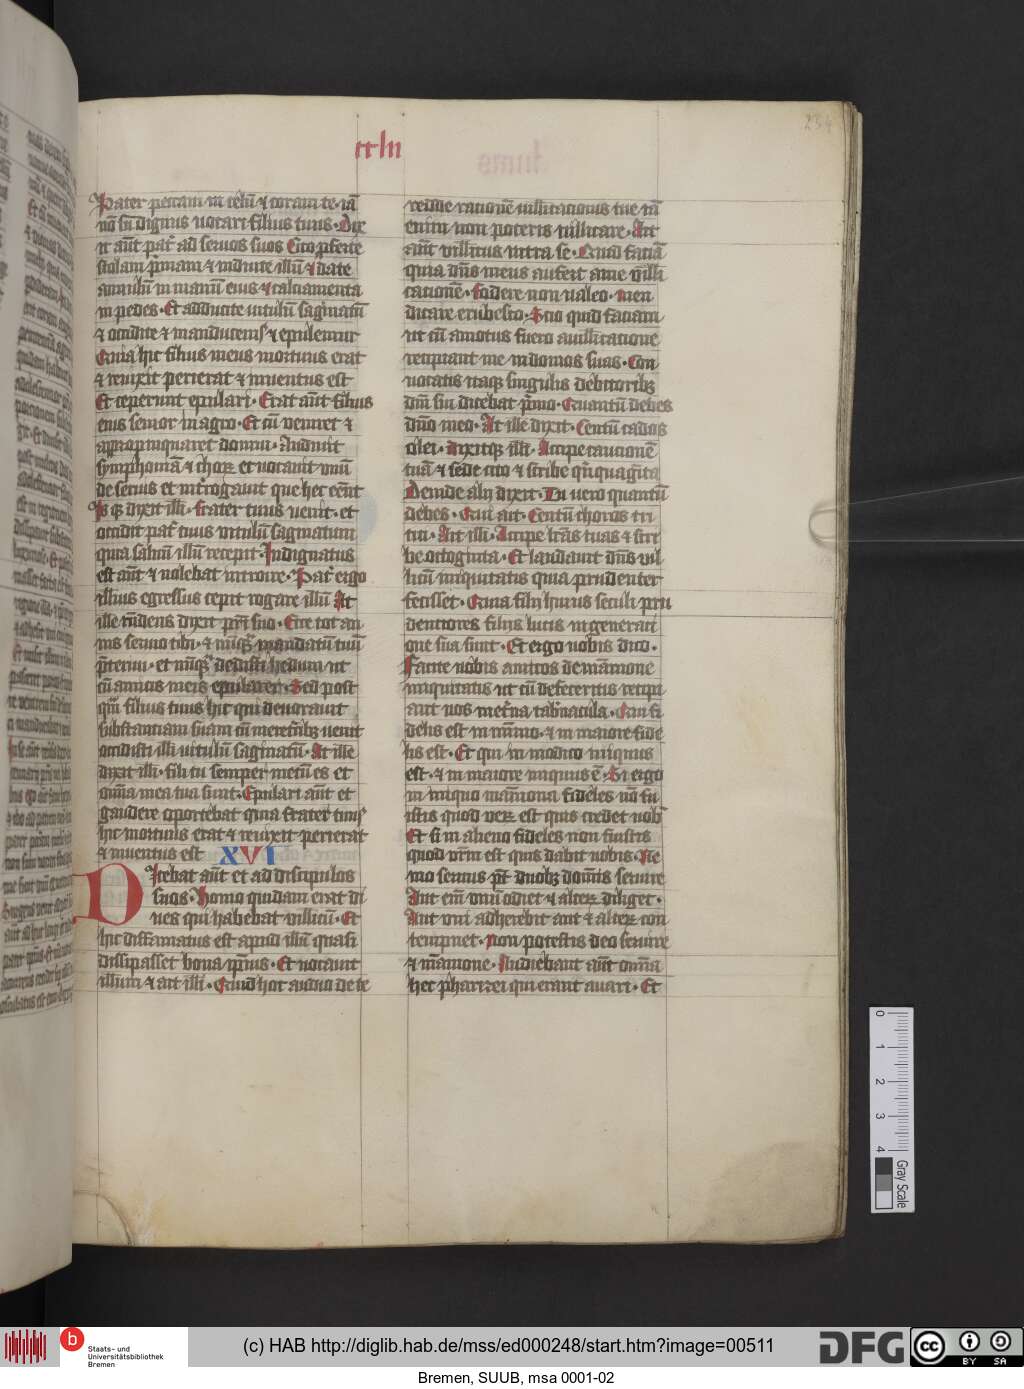 Pater peccaui in celū ⁊ coram te· iā
nō sū dignus uocari filius tuus· Dix
it aūt pat̄ ad seruos suos Cito p̄ferte
stolam p̄mam ⁊ induite illū ⁊ date
annulū in manū eius ⁊ calciamenta
in pedes· Et adducite uitulū saginatū
⁊ occidite ⁊ manducem⁹ ⁊ epulemur
Quia hic filius meus mortuus erat
⁊ reuixit perierat ⁊ inuentus est
Et ceperunt epulari· Erat aūt filius
eius senior in agro· Et cū ueniret ⁊
appropinquaret domui· Audiuit
symphoniā ⁊ choꝝ et uocauit unū
de seruis et int̄rogauit que hec eēnt
Isq; dixit illi· frater tuus uenit· et
occidit pat̄ tuus uitulū saginatum
quia saluū illū recepit· Indignatus
est aūt ⁊ nolebat introire· Pat̄ ergo
illius egressus cepit rogare illū At
ille rn̄dens dixit pr̄i suo· Ecce tot an
nis seruio tibi· ⁊ nūq̄ mandatū tuū
p̄teriui· et nūq̄ dedisti hedum ut
cū amicis meis epularer· Sed post
qm̄ filius tuus hic qui deuorauit
substantiam suam cū meretˡbꝫ uenit
occidisti illi uitulū saginatū· At ille
dixit illi· fili tu semper mecū es et
omīa mea tua sunt· Epulari aūt et
gaudere oportebat quia frater tuus
hic mortuus erat ⁊ reuixit perierat
⁊ inuentus est XVI
Dicebat aūt et ad discipulos
suos· Homo quidam erat di
ues qui habebat uillicū· Et
hic diffamatus est apud illū quasi
dissipasset bona ip̄ius· Et uocauit
illum ⁊ ait illi· Quid hoc audio de te
redde rationē uillicationis tue iā
enim non poteris uillicare· Ait
aūt uillicus intra se· Quid faciā
quia dn̄s meus aufert ame uilli
cationē· fodere non ualeo· men
dicare erubesco· Scio quid faciam
ut cū amotus fuero auillicatione
recipiant me in domos suas· Con
uocatis itaq; singulis debitoribꝫ
dn̄i sui dicebat p̄mo· Quantū debes
dn̄o meo· At ille dixit· Centū cados
olei· dixitq; illi· Accipe cautionē
tuā ⁊ sede cito ⁊ scribe quīquagīta
Deinde alij dixit· Tu uero quantū
debes· Qui ait· Centū choros tri
tici· Ait illi· Accipe lr̄as tuas ⁊ scri
be octoginta· Et laudauit dn̄s uil
licū iniquitatis quia prudenter
fecisset· Quia filij huius seculi pru
dentiores filijs lucis in generati
one sua sunt· Et ergo uobis dico·
Facite uobis amicos de māmone
iniquitatis ut cū defeceritis recipi
ant uos in et̄na tab̄nacula· Qui fi
delis est in minīmo· ⁊ in maiore fide
lis est· Et qui in modico iniquus
est· ⁊ in maiore iniquus ē· Si ergo
in iniquo māmona fideles nō fu
istis quod ueꝝ est quis credet uob̄
Et si in alieno fideles non fuistis
quod vr̄m est quis dabit uobis· Ne
mo seruus pt̄ duobꝫ domīs seruire
Aut em̄ unū odiet ⁊ alteꝝ diliget·
Aut uni adherebit aut ⁊ alteꝝ con
tempnet· Non potestis deo seruire
⁊ māmone· Audiebant aūt omīa
hec pharizei qui erant auari· Et
234
0 1 2 3 4
Gray Scale
Staats- und
Universitätsbibliothek
Bremen
(c) HAB http://diglib.hab.de/mss/ed000248/start.htm?image=00511
DFG
cc
BY SA
Bremen, SUUB, msa 0001-02